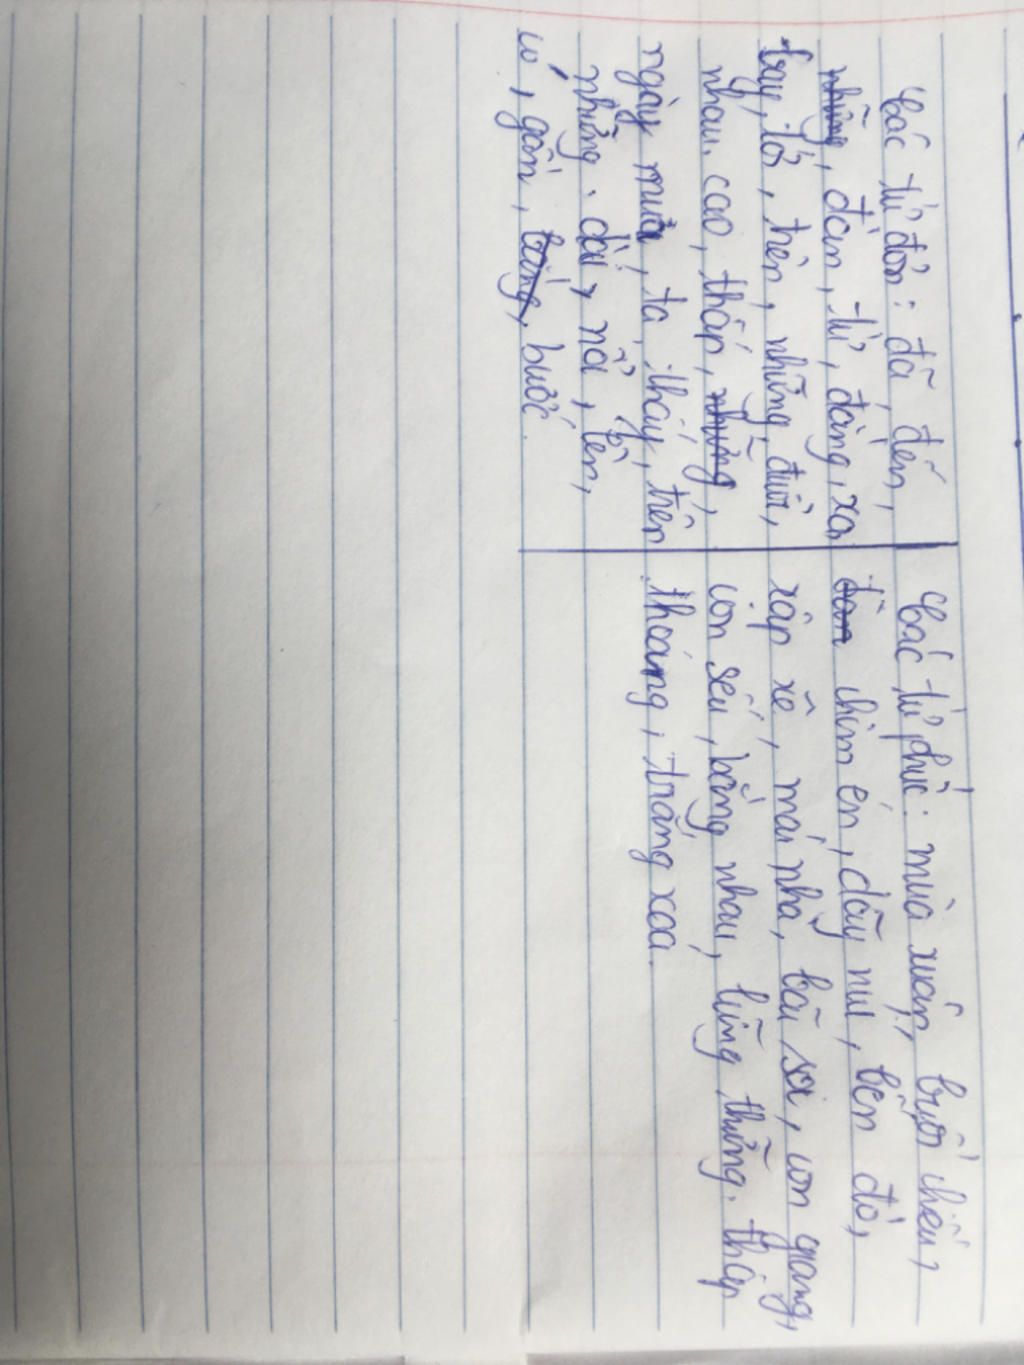 Các từ đơn: đã, đến,
những, đàn, từ, đàng, xa
bay, tới, trên, những, đuổi,
nhau, cao, thấp, những,
ngày mưa, ta, thấy, trên
những. dài, nổi, lên,
có, gần, trắng, bước.
Các từ phức: mùa xuân, buổi chiều,
đàn chim én, dãy núi, bến đò,
xập xè, mái nhà, bãi soi, con giang,
con sếu, bằng nhau, lững thững. thấp
thoáng, trắng xoá.